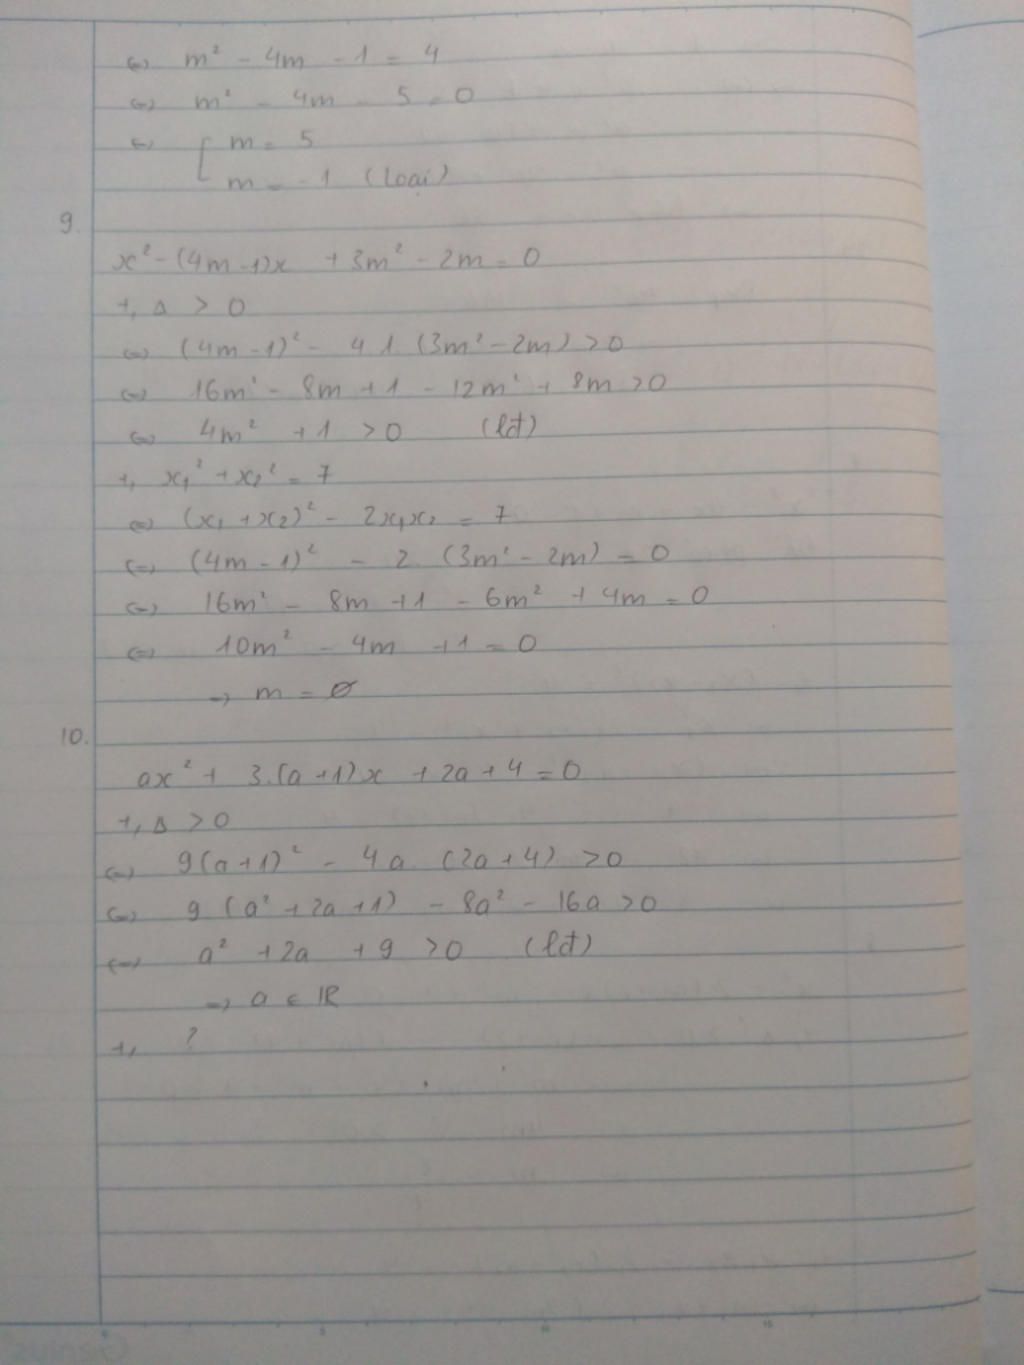 ⇔ m² - 4m - 1 = 4
⇔ m² - 4m - 5 = 0
⇔ [ m = 5
m = -1 (loại)
9.
x² - (4m-1)x + 3m² - 2m = 0
+, Δ > 0
⇔ (4m-1)² - 4.1.(3m² - 2m) > 0
⇔ 16m² - 8m + 1 - 12m² + 8m > 0
⇔ 4m² + 1 > 0 (lđ)
+, x₁² + x₂² = 7
⇔ (x₁ + x₂)² - 2x₁x₂ = 7
⇔ (4m - 1)² - 2.(3m² - 2m) = 0
⇔ 16m² - 8m + 1 - 6m² + 4m = 0
⇔ 10m² - 4m + 1 = 0
→ m = ∅
10.
ax² + 3.(a+1)x + 2a + 4 = 0
+, Δ > 0
⇔ 9(a+1)² - 4a.(2a+4) > 0
⇔ 9(a² + 2a + 1) - 8a² - 16a > 0
⇔ a² + 2a + 9 > 0 (lđ)
→ a ∈ ℝ
+, ?